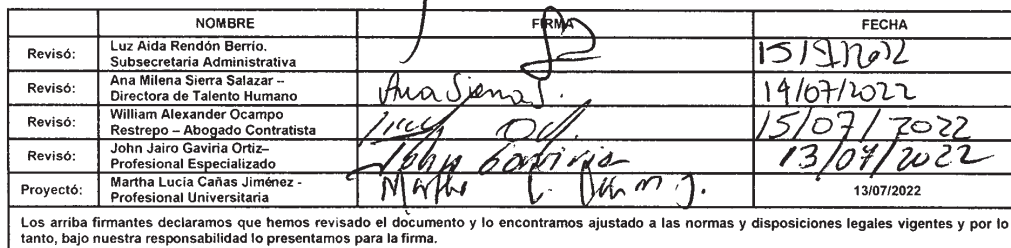 NOMBRE FIRMA FECHA
Revisó: Luz Aida Rendón Berrío.
Subsecretaria Administrativa
Revisó: Ana Milena Sierra Salazar –
Directora de Talento Humano Ana Sierra S. 14/07/2022
Revisó: William Alexander Ocampo
Restrepo – Abogado Contratista 15/07/2022
Revisó: John Jairo Gaviria Ortiz–
Profesional Especializado John Gaviria 13/07/2022
Proyectó: Martha Lucía Cañas Jiménez -
Profesional Universitaria Martha 13/07/2022
Los arriba firmantes declaramos que hemos revisado el documento y lo encontramos ajustado a las normas y disposiciones legales vigentes y por lo
tanto, bajo nuestra responsabilidad lo presentamos para la firma.